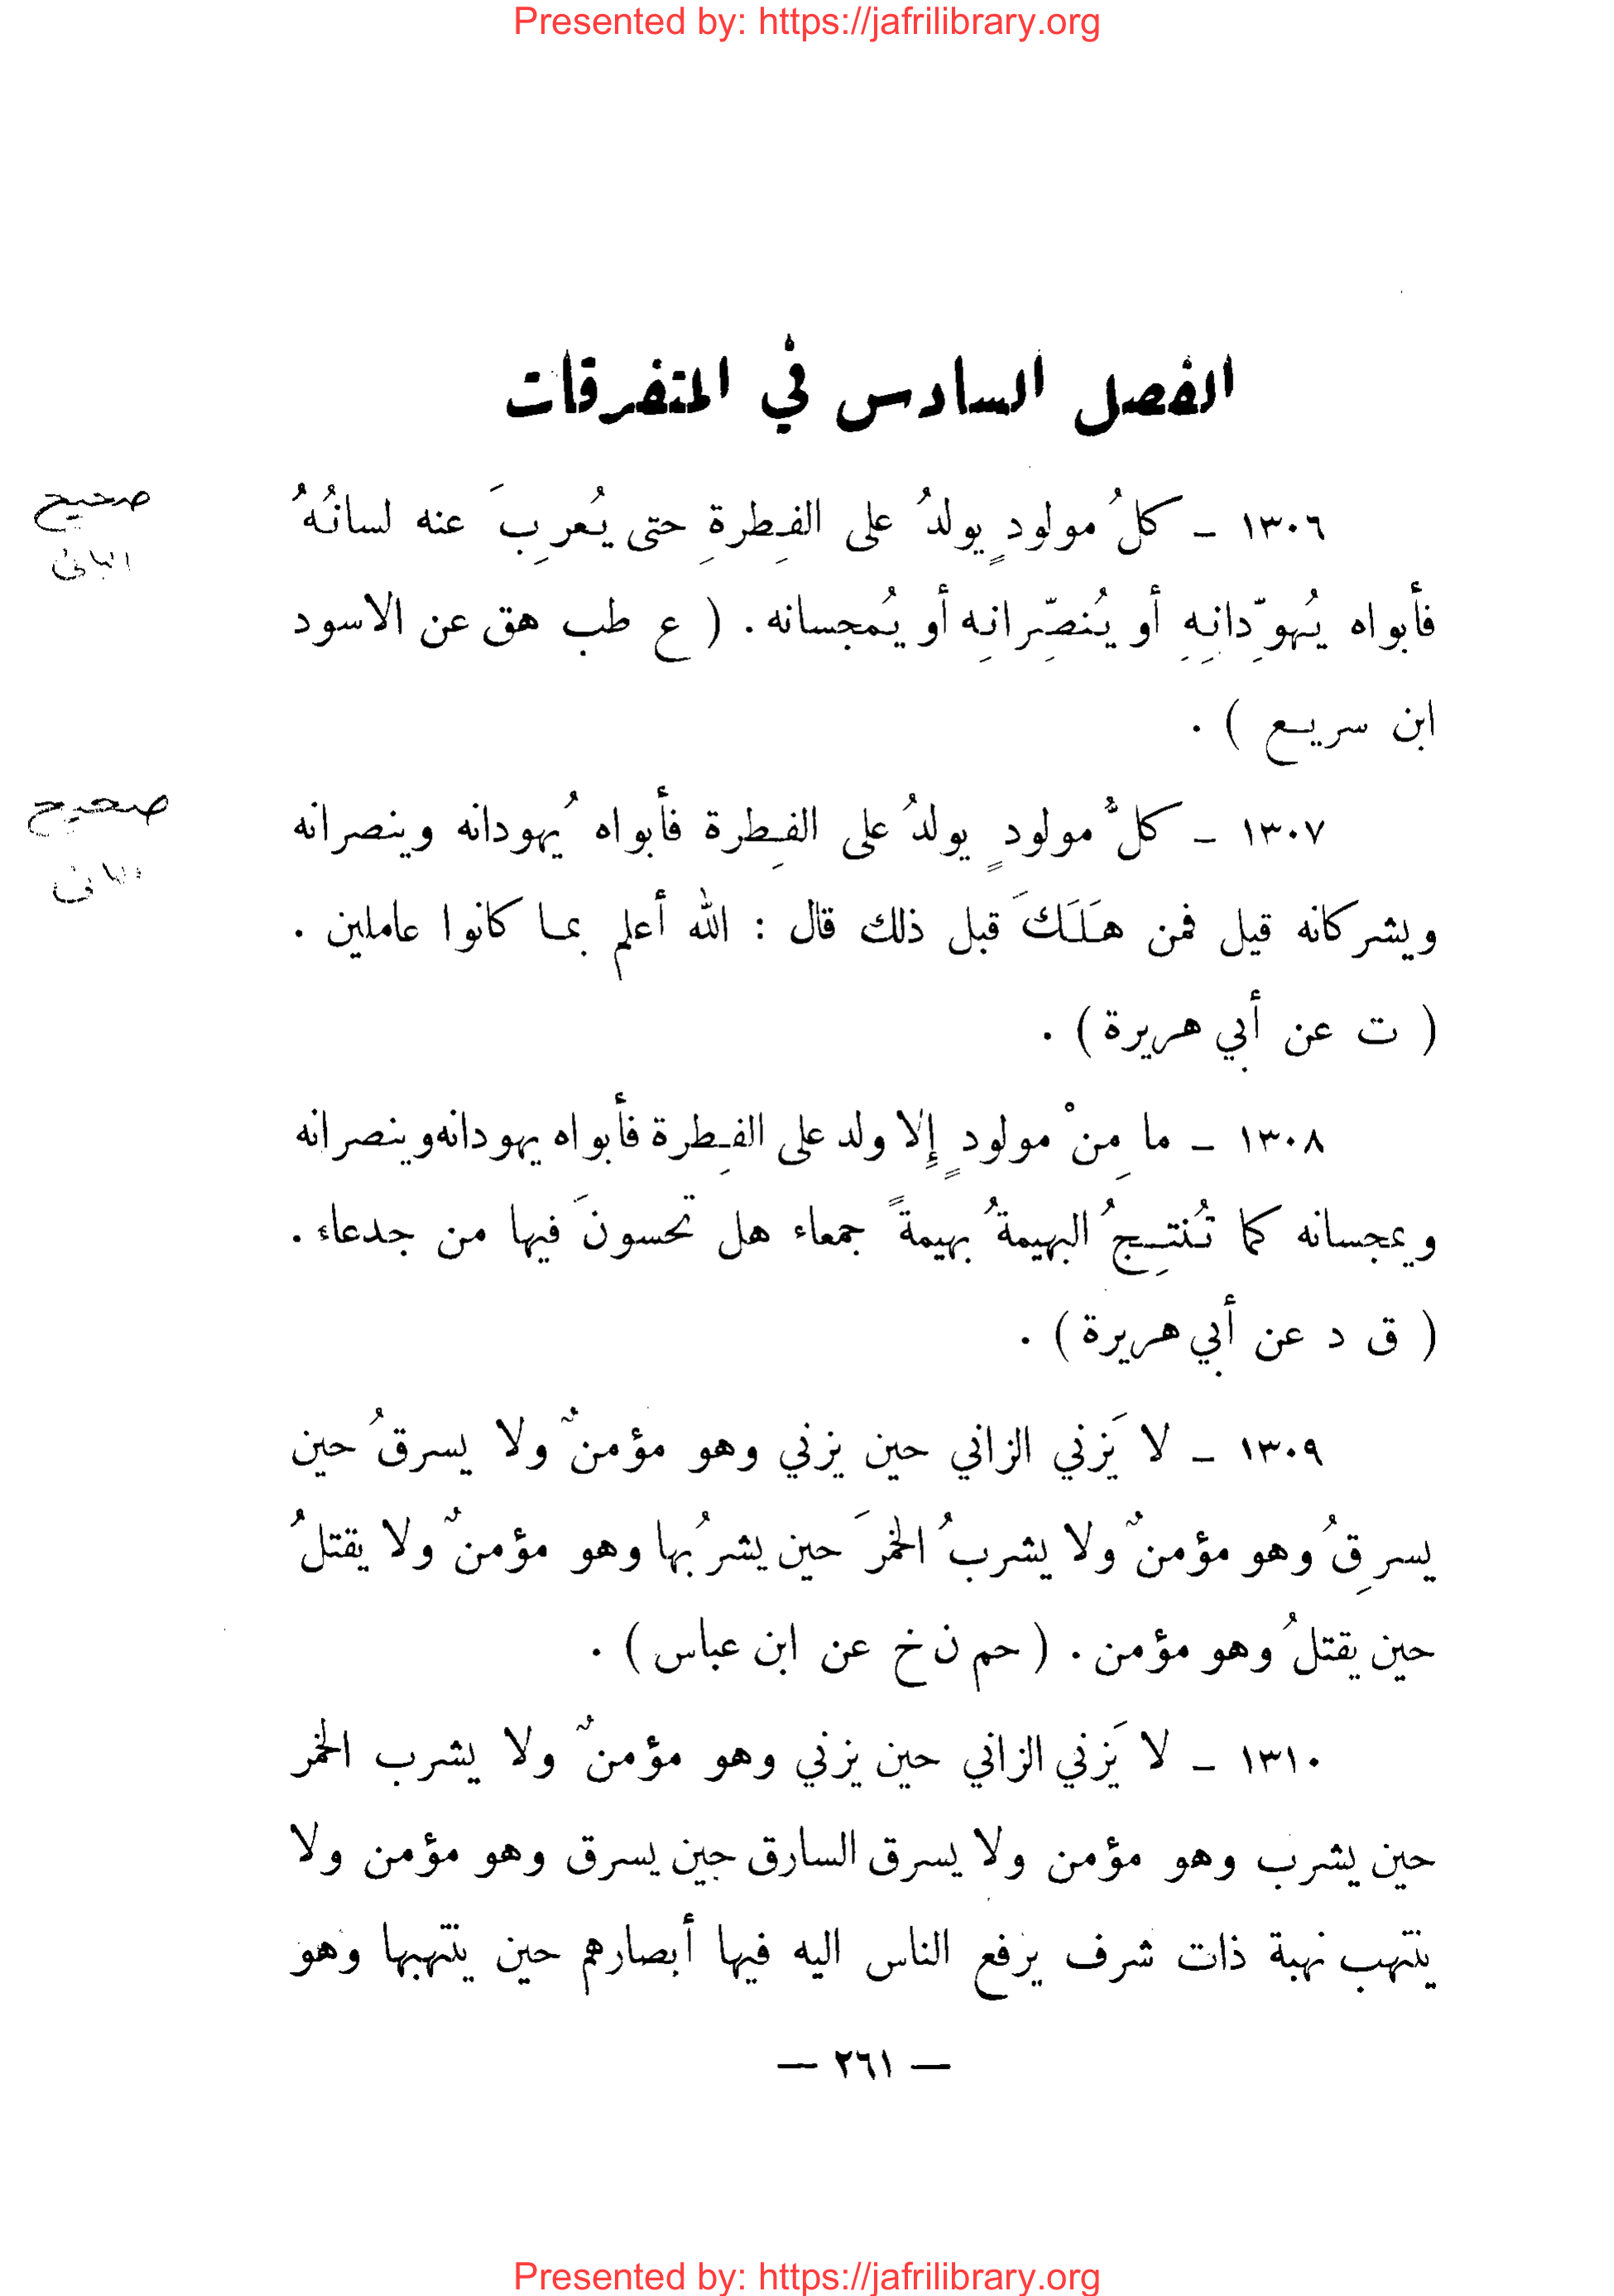 Presented by: https://jafrilibrary.org
الفصل السادس في المتفرقات
١٣٠٦ ـ كلُ مولودٍ يولدُ على الفِطرةِ حتى يُعرِبَ عنه لسانُهُ
فأبواه يُهوِّدانِهِ أو يُنصِّرانِه أو يُمجسانه . ( ع طب هق عن الاسود
ابن سريع ) .
صحيح
البانى
١٣٠٧ ـ كلُّ مولودٍ يولدُ على الفِطرة فأبواه يُهودانه وينصرانه
ويشركانه قيل فمن هَلَكَ قبل ذلك قال : الله أعلم بما كانوا عاملين .
( ت عن أبي هريرة ) .
صحيح
البانى
١٣٠٨ ـ ما مِنْ مولودٍ إِلا ولد على الفِطرة فأبواه يهودانه وينصرانه
ويمجسانه كما تُنتِجُ البهيمةُ بهيمةً جمعاء هل تحسونَ فيها من جدعاء .
( ق د عن أبي هريرة ) .
١٣٠٩ ـ لا يَزني الزاني حين يزني وهو مؤمنٌ ولا يسرقُ حين
يسرِقُ وهو مؤمنٌ ولا يشربُ الخمرَ حين يشربُها وهو مؤمنٌ ولا يقتلُ
حين يقتلُ وهو مؤمن . ( حم ن خ عن ابن عباس ) .
١٣١٠ ـ لا يَزني الزاني حين يزني وهو مؤمنٌ ولا يشرب الخمر
حين يشرب وهو مؤمن ولا يسرق السارق حين يسرق وهو مؤمن ولا
ينتهب نهبة ذات شرف يرفع الناس اليه فيها أبصارهم حين ينتهبها وهو
— ٢٦١ —
Presented by: https://jafrilibrary.org